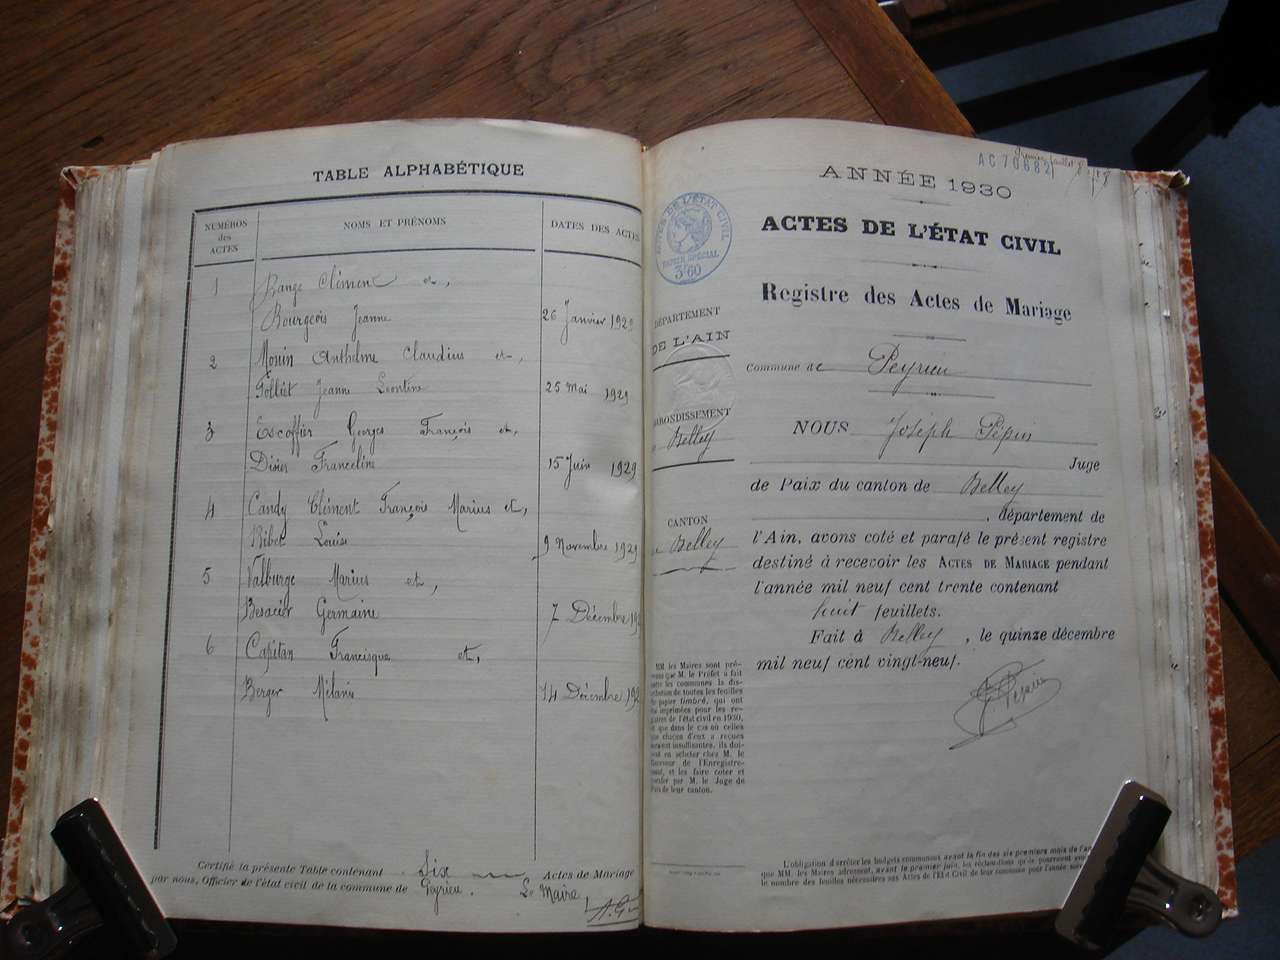 TABLE ALPHABÉTIQUE
NUMÉROS
des
ACTES
NOMS ET PRÉNOMS
DATES DES ACTES
1
Range Clément et,
Bourgeois Jeanne
26 Janvier 1929
2
Monin Anthelme Claudius et,
Jeanne Léontine
25 Mai 1929
3
Escoffier Georges François et,
Didier Franceline
15 Juin 1929
4
Candy Clément François Marius et,
Ribet Louise
9 Novembre 1929
5
Valburge Marius et,
Besacier Germaine
7 Décembre 19
6
Capitan Francisque et,
Berger Mélanie
14 Décembre 19
Certifié la présente Table contenant Six Actes de Mariage
par nous, Officier de l'état civil de la commune de Peyrieu. Le Maire
AC 70682
ANNÉE 1930
ACTES DE L'ÉTAT CIVIL
PAPIER SPECIAL
3F60
ACTES DE L'ÉTAT CIVIL
Registre des Actes de Mariage
DÉPARTEMENT
DE L'AIN
ARRONDISSEMENT
Belley
CANTON
Belley
Commune de Peyrieu
NOUS Joseph Pépin
Juge
de Paix du canton de Belley
, département de
l'Ain, avons coté et parafé le présent registre
destiné à recevoir les ACTES DE MARIAGE pendant
l'année mil neuf cent trente contenant
huit feuillets.
Fait à Belley, le quinze décembre
mil neuf cent vingt-neuf.
J Pépin
MM les Maires sont pré-
venus que M. le Préfet a fait
entre les communes la dis-
tribution de toutes les feuilles
de papier timbré, qui ont
été imprimées pour les re-
gistres de l'état civil en 1930,
et que dans le cas où celles
que chacun d'eux a reçues
seraient insuffisantes, ils doi-
vent en acheter chez M. le
Receveur de l'Enregistre-
ment, et les faire coter et
parafer par M. le Juge de
Paix de leur canton.
L'obligation d'arrêter les budgets communaux avant la fin des six premiers mois de l'an
que MM. les Maires adressent, avant le premier juin, les réclamations qu'ils pourront
le nombre des feuilles nécessaires aux Actes de l'État Civil de leur commune pour l'année